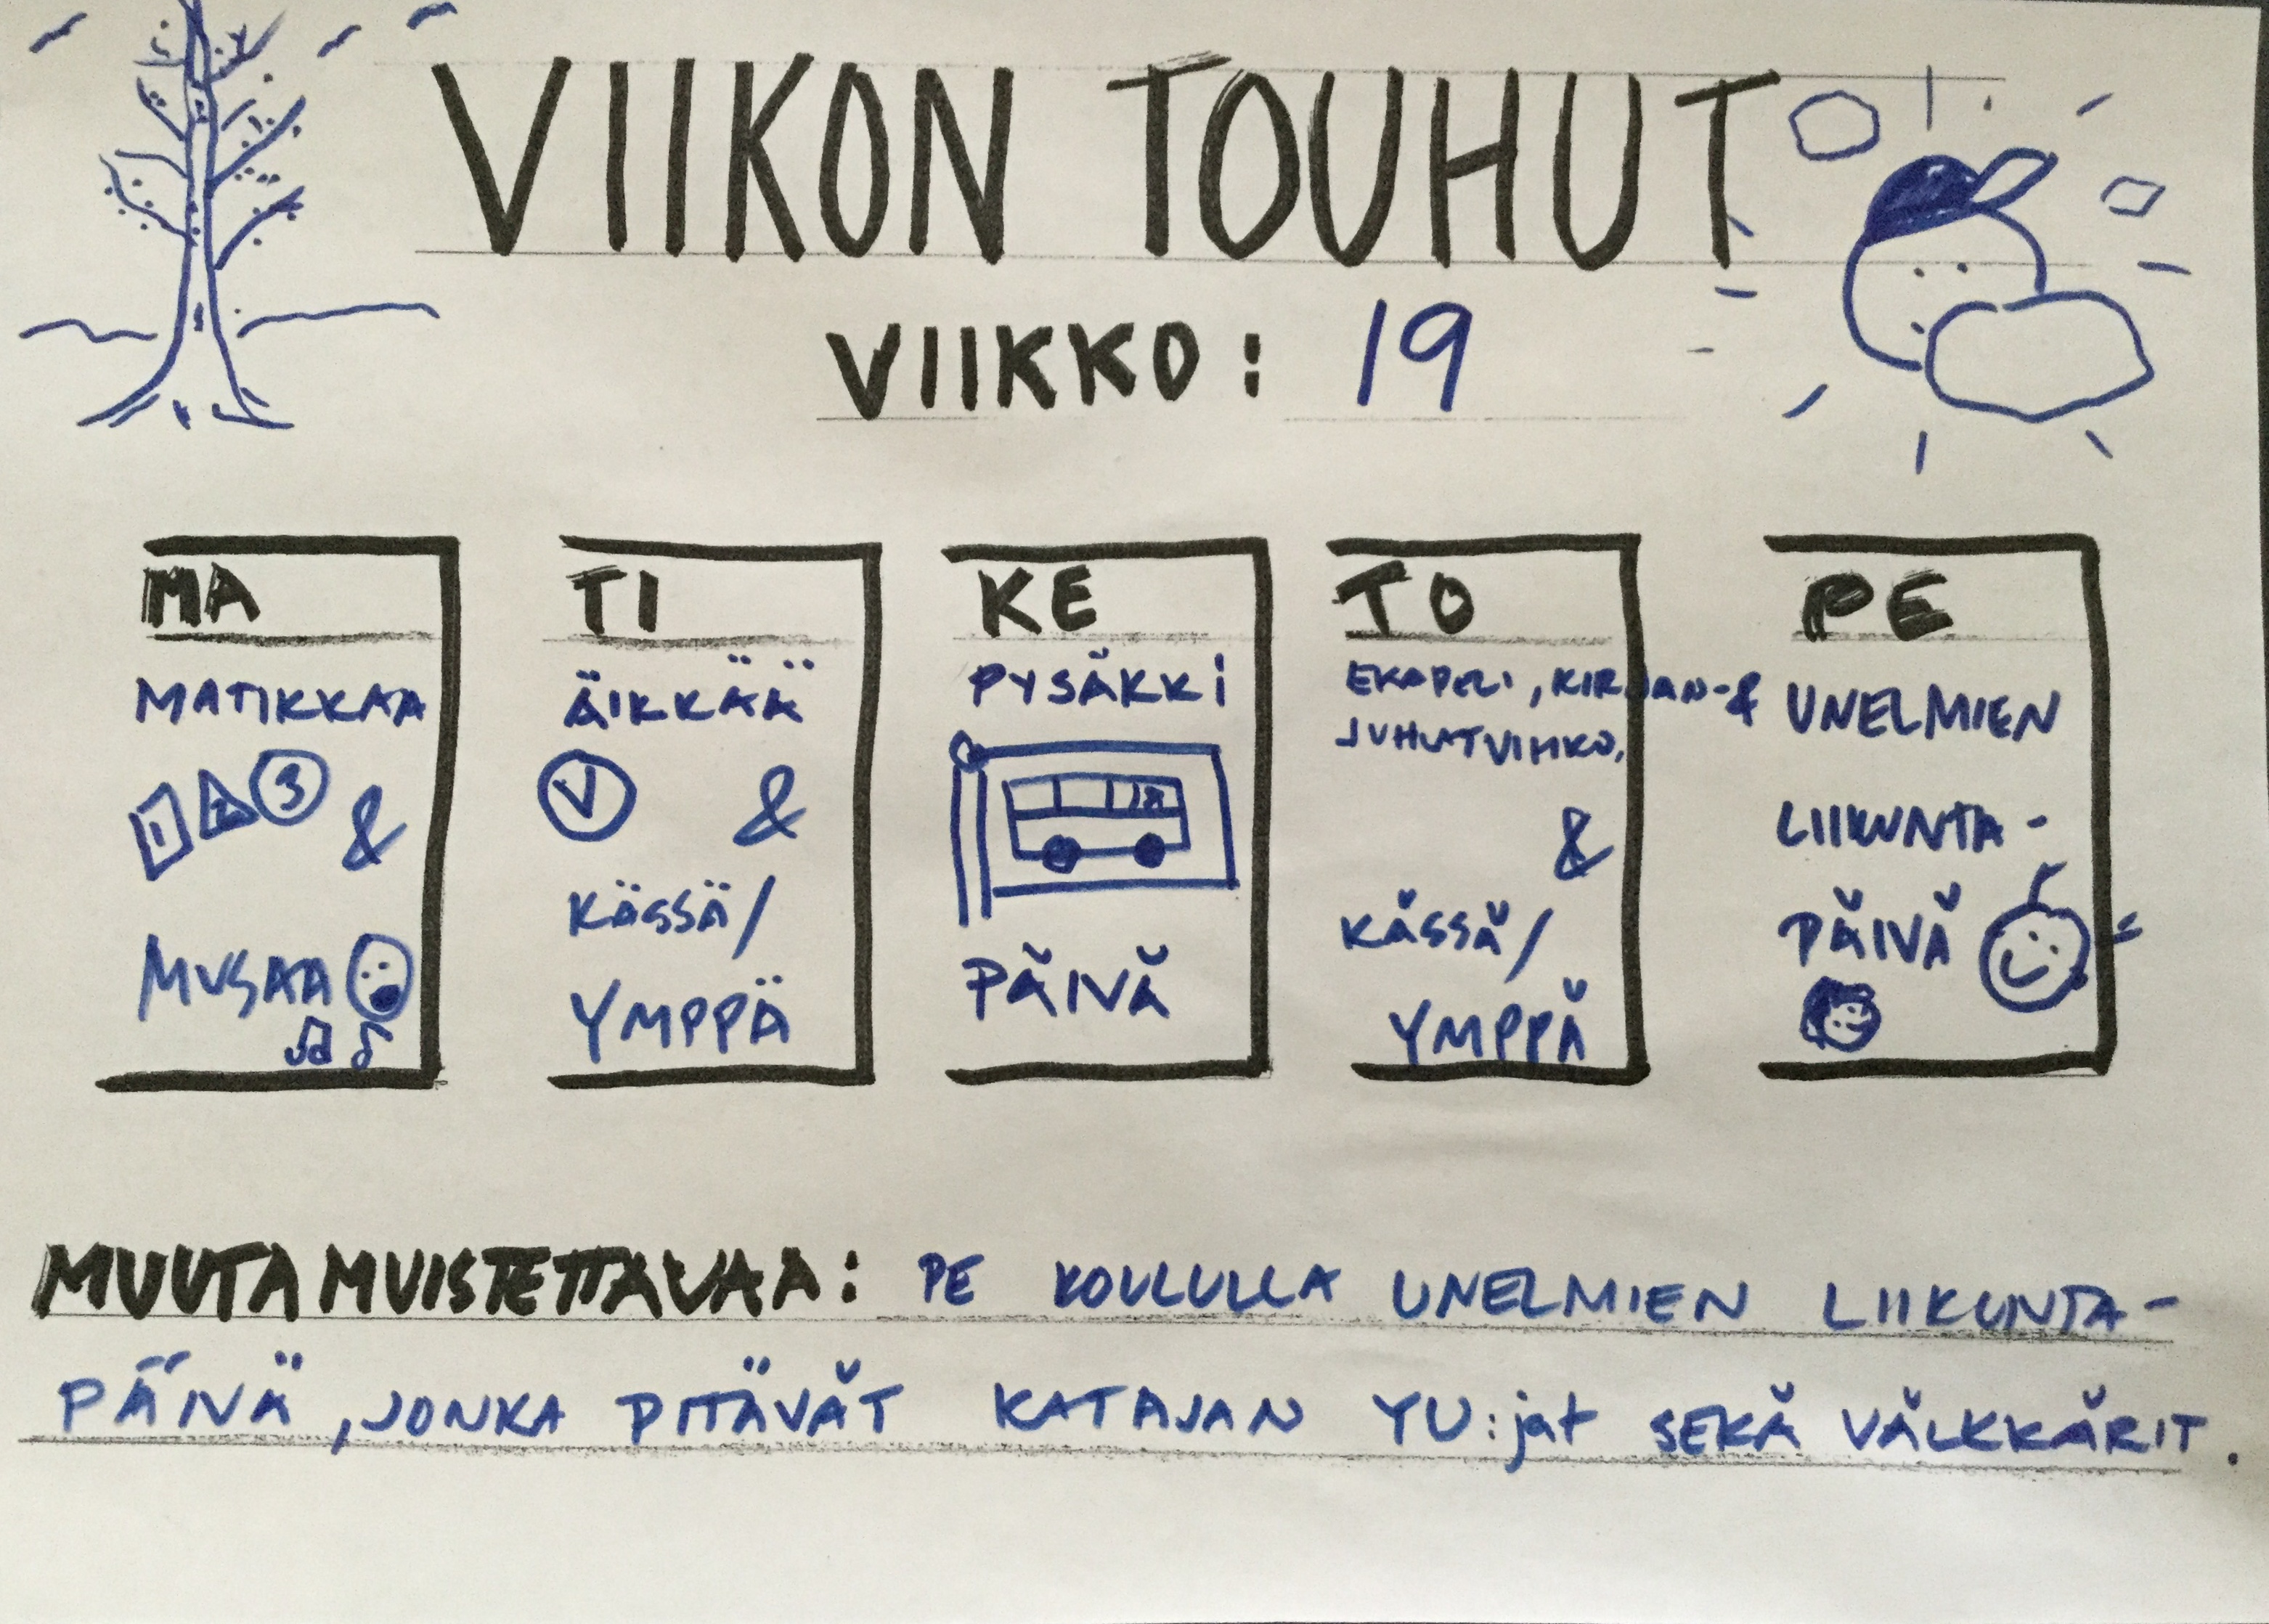 VIIKON TOUHUT
VIIKKO: 19
MA
MATIKKAA
1 2 3 &
MUSAA
TI
ÄIKKÄÄ
V &
KÄSSÄ/
YMPPÄ
KE
PYSÄKKI
PÄIVÄ
TO
EKAPELI, KIRJAN- &
JUHLATVIHKO,
&
KÄSSÄ/
YMPPÄ
PE
UNELMIEN
LIIKUNTA-
PÄIVÄ
MUUTA MUISTETTAVAA: PE KOULULLA UNELMIEN LIIKUNTA-
PÄIVÄ, JONKA PITÄVÄT KATAJAN YU:jat SEKÄ VÄLKKÄRIT.